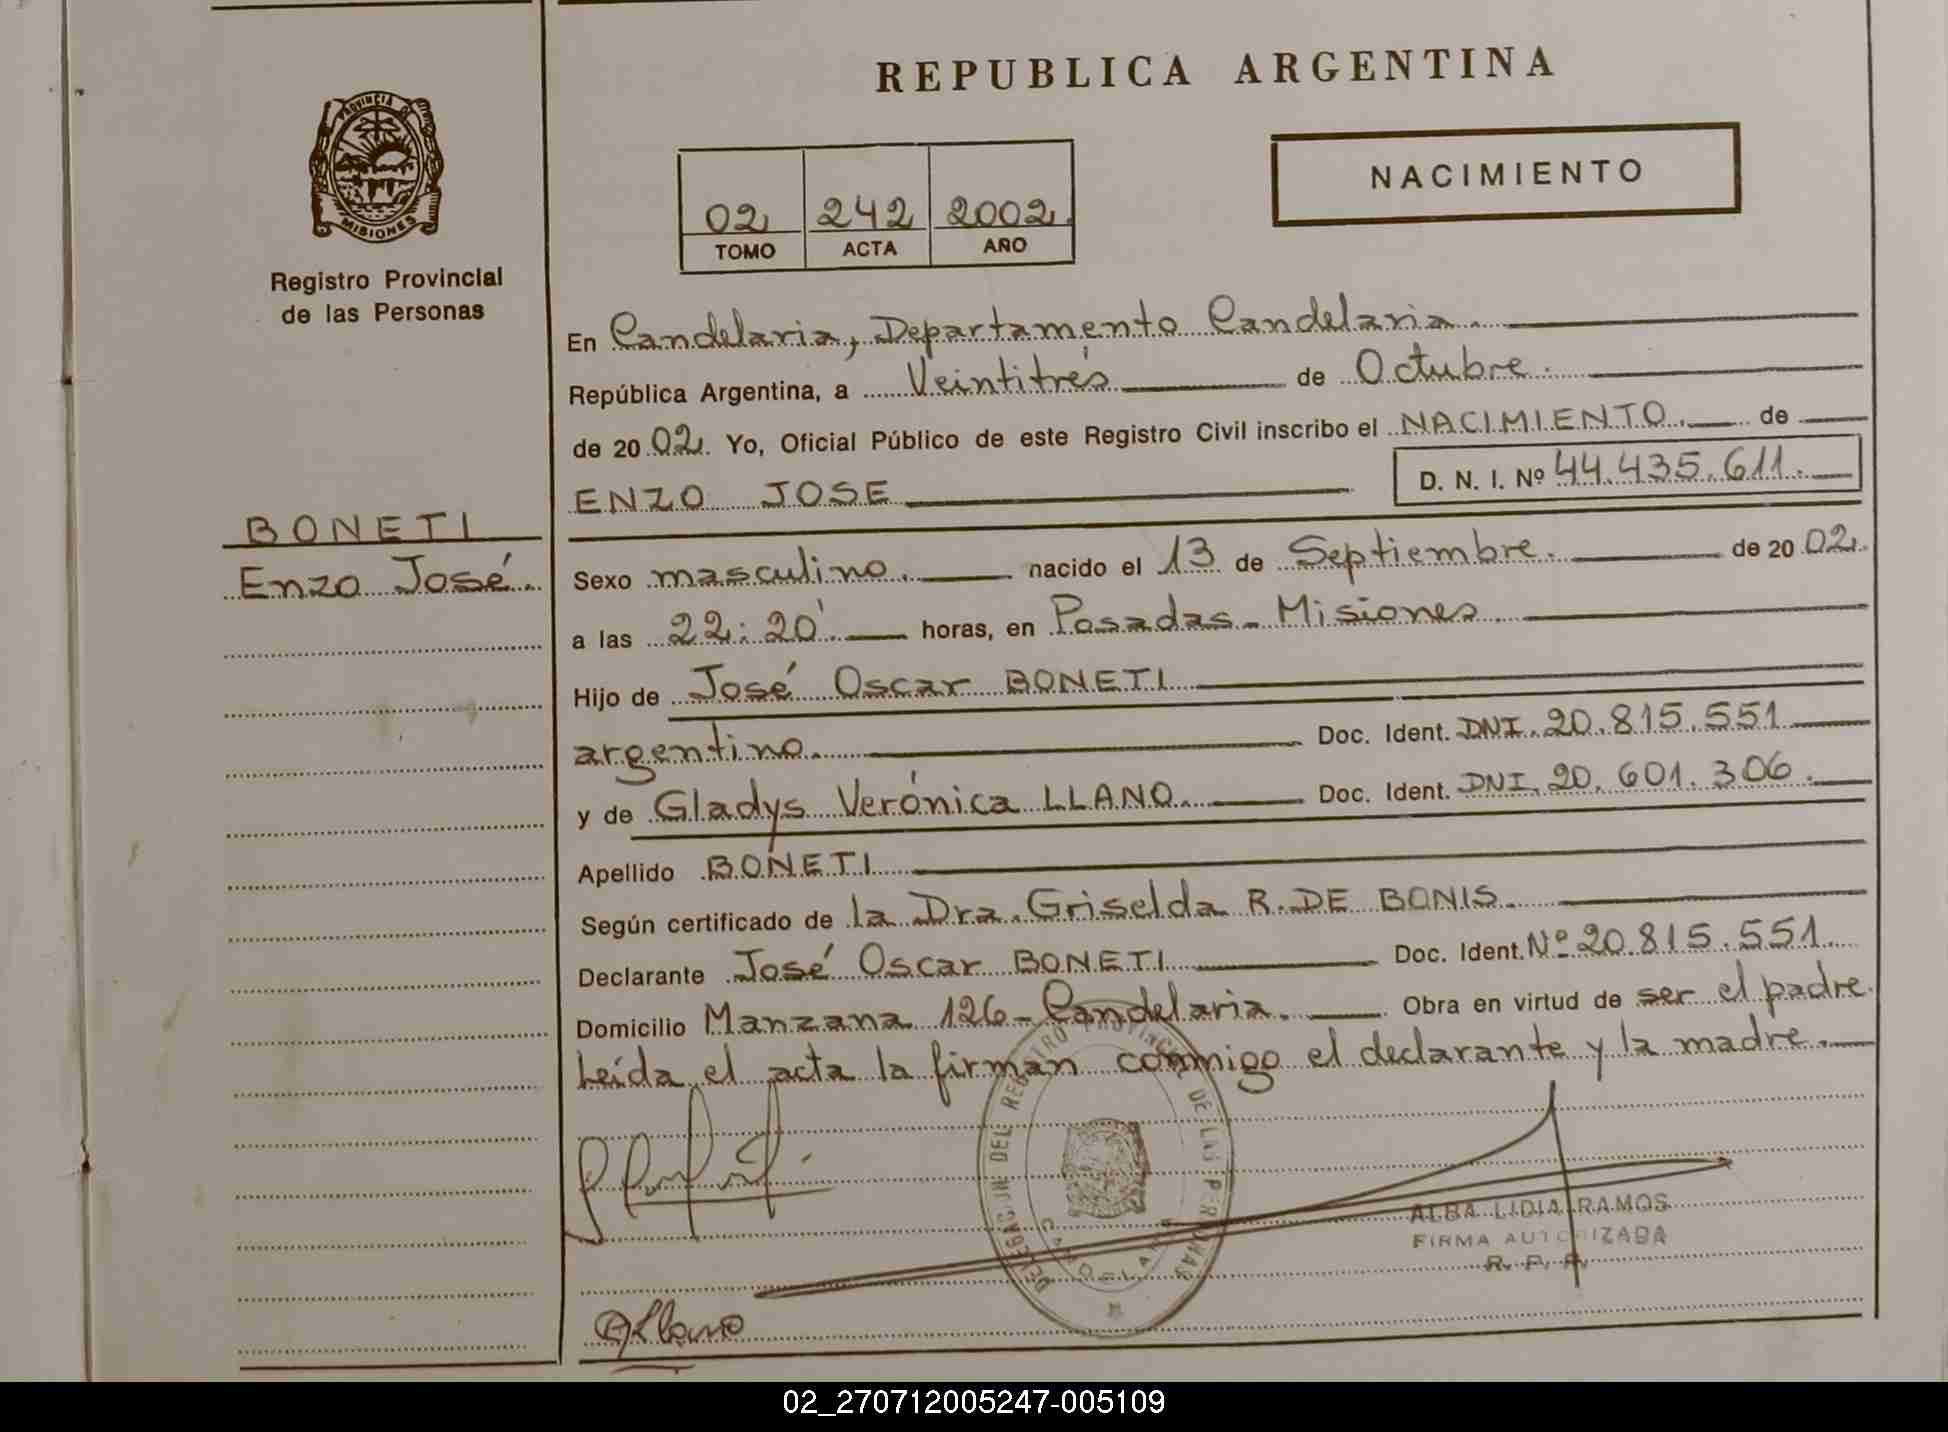 REPUBLICA ARGENTINA
PROVINCIA DE
MISIONES
Registro Provincial
de las Personas
02 242 2002
TOMO ACTA AÑO
NACIMIENTO
En Candelaria, Departamento Candelaria.
República Argentina, a Veintitrés de Octubre.
de 2002. Yo, Oficial Público de este Registro Civil inscribo el NACIMIENTO. de
ENZO JOSE D. N. I. Nº 44.435.611.
BONETI
Enzo José.
Sexo masculino. nacido el 13 de Septiembre. de 2002.
a las 22:20' horas, en Posadas - Misiones.
Hijo de José Oscar BONETI
argentino. Doc. Ident. DNI. 20.815.551
y de Gladys Verónica LLANO. Doc. Ident. DNI. 20.601.306.
Apellido BONETI
Según certificado de la Dra. Griselda R. DE BONIS.
Declarante José Oscar BONETI Doc. Ident. Nº 20.815.551.
Domicilio Manzana 126 - Candelaria. Obra en virtud de ser el padre.
Leída el acta la firman conmigo el declarante y la madre.
DELEGACION DEL REGISTRO PROVINCIAL DE LAS PERSONAS
CANDELARIA
ALBA LIDIA RAMOS
FIRMA AUTORIZADA
R. P. P.
02_270712005247-005109